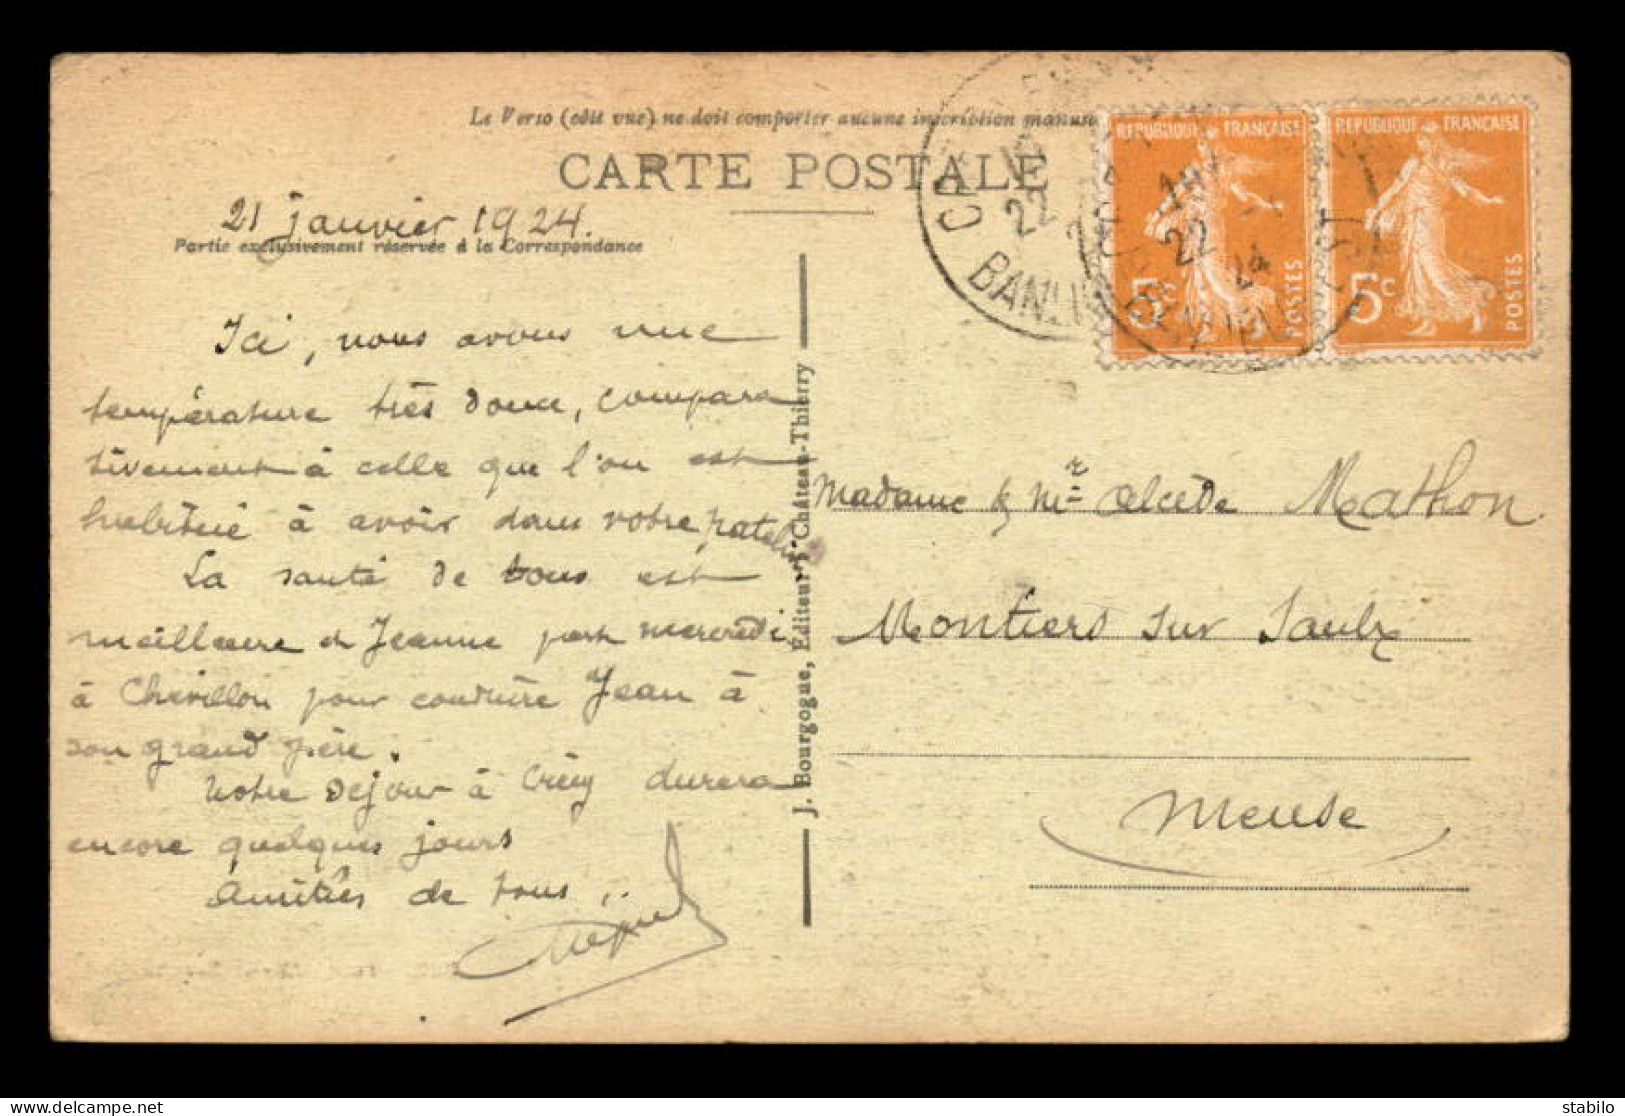 Le Verso (côté vue) ne doit comporter aucune inscription manus
CARTE POSTALE
21 janvier 1924.
Partie exclusivement réservée à la Correspondance
Ici, nous avons une
température très douce, compara
tivement à celle que l'on est
habitué à avoir dans votre patelin
La santé de tous est
meilleure et Jeanne part mercredi
à Chevillon pour conduire Jean à
son grand père.
Notre séjour à Crécy durera
encore quelques jours
Amitiés de tous
J. Bourgogne, Éditeur, Château-Thierry
REPUBLIQUE FRANÇAISE
5c POSTES
REPUBLIQUE FRANÇAISE
5c POSTES
22
BANLIEUE
22
24
Madame & Mr Alcède Mathon
Montiers sur Saulx
Meuse
stabilo